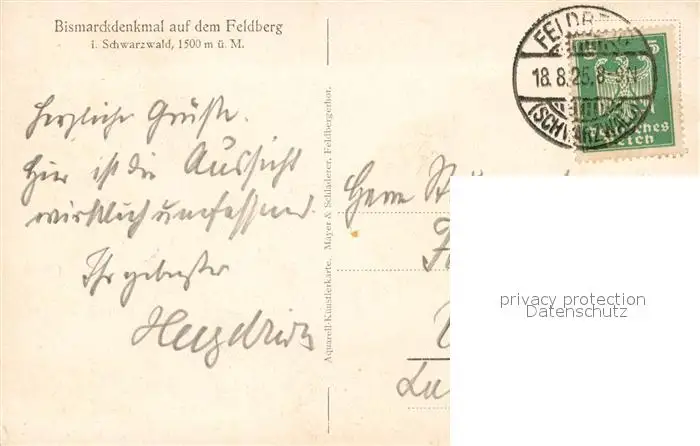 Bismarckdenkmal auf dem Feldberg
i. Schwarzwald, 1500 m ü. M.
Herzliche Grüße.
Hier ist die Aussicht
wirklich umfassend.
Ihr
Aquarell-Künstlerkarte. Mayer & Schladerer, Feldbergerhof.
FELDBE
18.8.25.8-9N
(SCHWARZWALD)
5
Deutsches
Reich
Herrn
privacy protection
Datenschutz